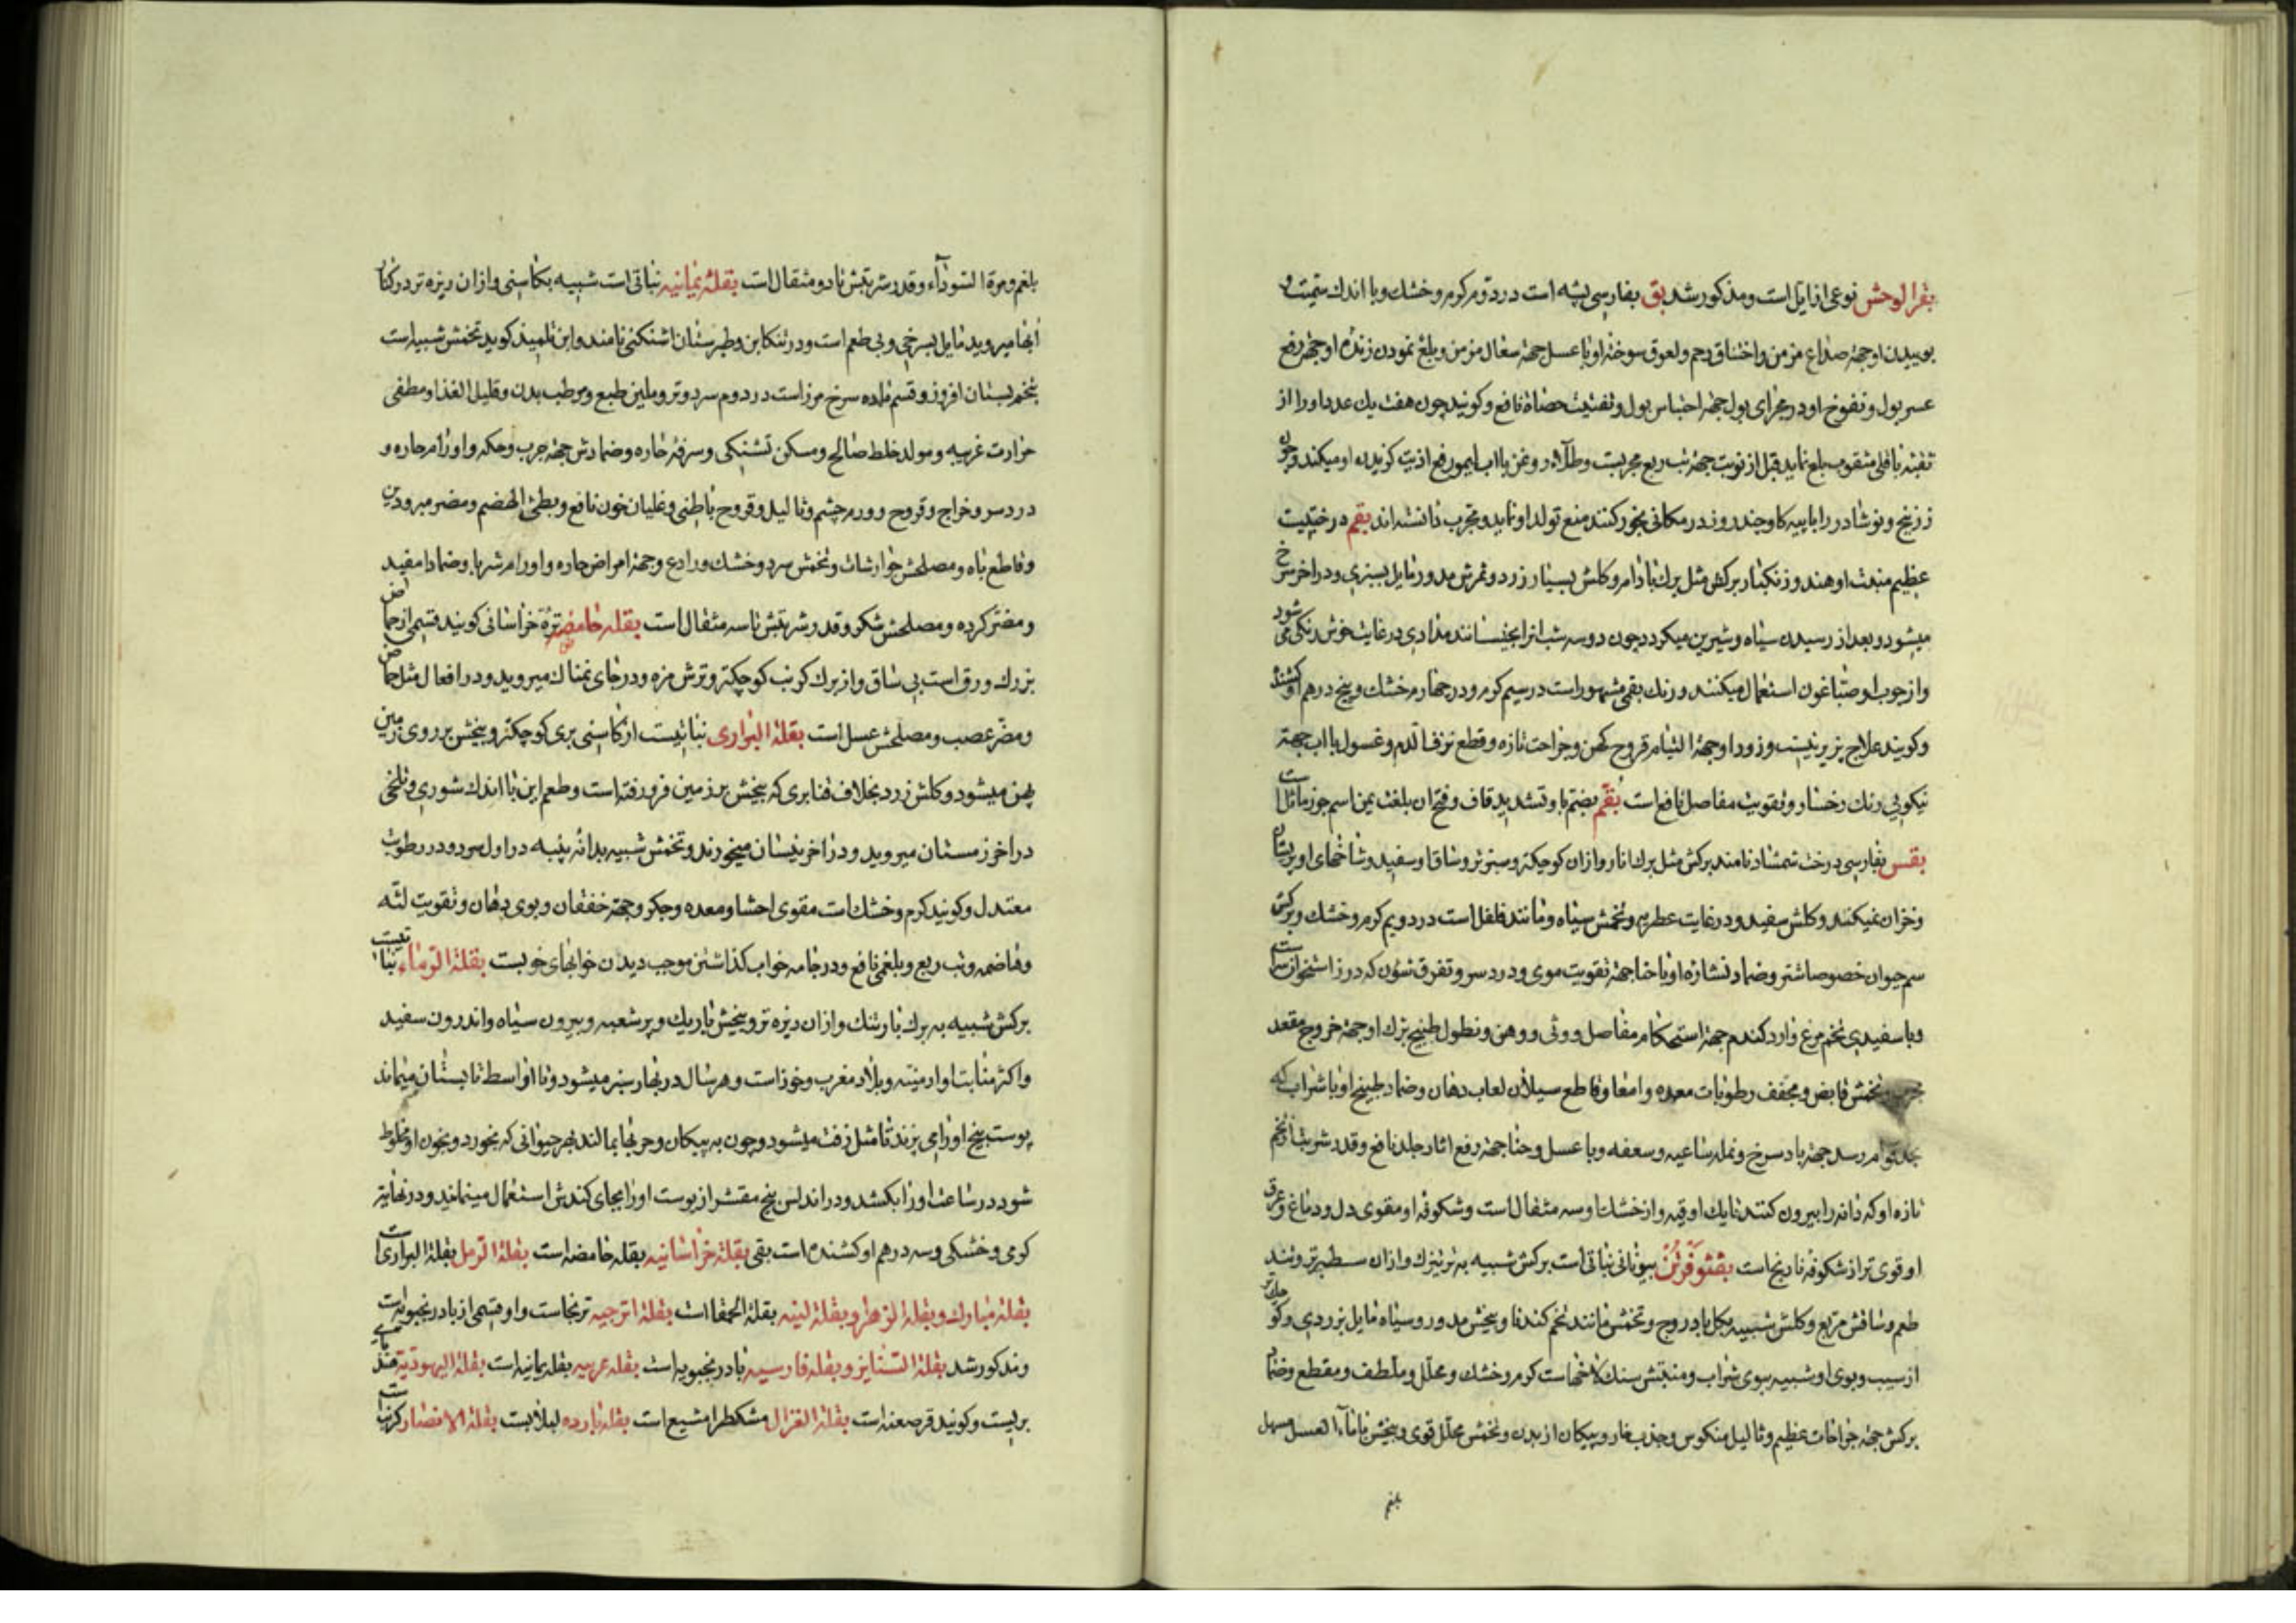 بقرالوحش نوعی از ایل است ومذکور شد بق بفارسی پشه است در دوم کرم وخشك وبا اندك سمیت و
بوییدن او جهة صداع مزمن واختناق رحم ولعوق سوخته او با عسل جهة سعال مزمن وبلغ نمودن زندۀ او جهة رفع
عسر بول ونفوخ او در مجرای بول جهة احتباس بول وتفتیت حصاة نافع وکویند چون هفت یك عدد اورا از
ثقبۀ باقلی مثقوب بلع نماید قبل از نوبت جهة تب ربع مجربست وطلاء روغن با اب لیمو رفع اذیت کزیدن او میکند وچون
زرنیخ ونوشادر را با پیه کاو چند روز در مکانی بخور کنند منع تولد او نماید ومجرب دانسته اند بقم درختیست
عظیم منبت او هند وزنکبار برکش مثل برك بادام وکلش بسیار زرد وثمرش مدور مایل بسبزی ودر اخر سرخ
میشود وبعد از رسیدن سیاه وشیرین میکردد چون دو سه شب انرا بخیسانند مدادی در غایت خوش رنکی می شود
واز چوب او صباغون استعمال میکنند ورنك بقمی مشهور است در سیم کرم ودر چهارم خشك وپنج درهم او کشنده
وکویند علاج پزیر نیست وزرور او جهة التیام قروح کهن وجراحت تازه وقطع نزف الدم وغسول با اب جهة
نیکویی رنك رخسار وتقویت مفاصل نافع است بقم بضم با وتشدید قاف وفتح ان بلغت یمن اسم جوز ماثل است
بقس بفارسی درخت شمشاد نامند برکش مثل برك انار وازان کوچکتر وسبزتر وساق او سفید وشاخهای او پریشان
وخزان نمیکند وکلش سفید ودر غایت عطریه وتخمش سیاه ومانند فلفل است در دویم کرم وخشك وبرکش
سم حیوان خصوصا شتر وضماد نشارۀ او با حنا جهة تقویت موی ودرد سر وتفرق شؤن که درز استخوان سر است
وبا سفیدی تخم مرغ وارد کندم جهة استحکام مفاصل ووثی ووهن ونطول طبیخ برك او جهة خروج مقعد
مجرب وتخمش قابض ومجفف رطوبات معده وامعا وقاطع سیلان لعاب دهان وضماد طبیخ او با شراب که
بحد قوام رسد جهة باد سرخ ونمله ساعیه وسعفه وبا عسل وحنا جهة رفع اثار جلد نافع وقدر شربت از تخم
تازه او که دانه را بیرون کنند تا یك اوقیه واز خشك او سه مثقال است وشکوفه او مقوی دل ودماغ وعرق
او قوی تر از شکوفه نارنج است بقثوفرثن بیونانی نباتی است برکش شبیه به ترتیزك وازان سطبرتر وتند
طعم وساقش مربع وکلش شبیه بکل بادروج وتخمش مانند تخم کندنا وبیخش مدور وسیاه مایل بزردی وکوچکتر
از سیب وبوی او شبیه ببوی شراب ومنبتش سنك لاخهاست کرم وخشك ومحلل وملطف ومقطع وضماد
برکش جهة جراحات عظیم وثالیل منکوس وجذب خار وپیکان از بدن وتخمش محلل قوی وبیخش با ماء العسل مسهل
بلغم
بلغم ومرة السوداء وقدر شربتش تا دو مثقال است بقلۀ یمانیه نباتی است شبیه بکاسنی وازان ریزه تر در کنار
ابها میروید مایل بسرخی وبی طعم است ودر تنکابن وطبرستان اشنکنی نامند وابن تلمیذ کوید تخمش شبیه است
بتخم بستان افروز وقسم ماده سرخ مرز است در دوم سرد وتر وملین طبع ومرطب بدن وقلیل الغذا ومطفی
حرارت غریبه ومولد خلط صالح ومسکن تشنکی وسرفۀ حاره وضمادش جهة جرب وحکه واورام حاره و
درد سر وخراج وقروح وورم چشم وثالیل وقروح باطنی وغلیان خون نافع وبطئ الهضم ومضر مبرودین
وقاطع باه ومصلحش جوارشات وتخمش سرد وخشك ورادع وجهة امراض حاره واورام شربا وضمادا مفید
ومضر کرده ومصلحش شکر وقدر شربتش تا سه مثقال است بقلۀ حامضه ترۀ خراسانی کویند قسمی از حماض
بزرك ورق است بی ساق واز برك کرنب کوچکتر وترش مزه ودر جای نمناك میروید ودر افعال مثل حماض
ومضر عصب ومصلحش عسل است بقلة البراری نباتیست از کاسنی بری کوچکتر وبیخش بر روی زمین
پهن میشود وکلش زرد بخلاف قنابری که بیخش بر زمین فرو رفته است وطعم این با اندك شوری وتلخی
در اخر زمستان میروید ودر اخر نیسان میخورند وتخمش شبیه بدانۀ پنبه در اول سرد ودر رطوبت
معتدل وکویند کرم وخشك است مقوی احشا ومعده وجکر وجهة خفقان وبوی دهان وتقویت لثه
وهاضمه وتب ربع وبلغمی نافع ودر جامه خواب کذاشتن موجب دیدن خوابهای خوبست بقلة الرماء نباتیست
برکش شبیه به برك بارتنك وازان ریزه تر وبیخش باریك وپر شعبه وبیرون سیاه واندرون سفید
واکثر منابت او ارمنیه وبلاد مغرب وخوز است وهر سال در بهار سبز میشود وتا اواسط تابستان میماند
پوست بیخ اورا می پزند تا مثل زفت میشود وچون به پیکان وحربها بمالند بهر حیوانی که بخورد وبخون او مخلوط
شود در ساعت اورا بکشد ودر اندلس بیخ مقشر از پوست اورا بجای کندش استعمال مینمایند ودر نهایة
کرمی وخشکی وسه درهم او کشنده است بقی بقلۀ خراسانیه بقله حامضه است بقلة الرمل بقلة البراری است
بقلۀ مبارك وبقلة الزهرا وبقلة لینه بقلة الحمقا است بقلة اترجیه ترنجاست واو قسمی از بادرنجبویه است
ومذکور شد بقلة الستنایز وبقلۀ فارسیه بادرنجبویه است بقله عربیه بقله یمانیه است بقلة الیهودیة هندبای
بریست وکویند قرصعنه است بقلة الغزال مشکطرامشیع است بقلۀ بارده لبلابست بقلة الانصار کرنب است